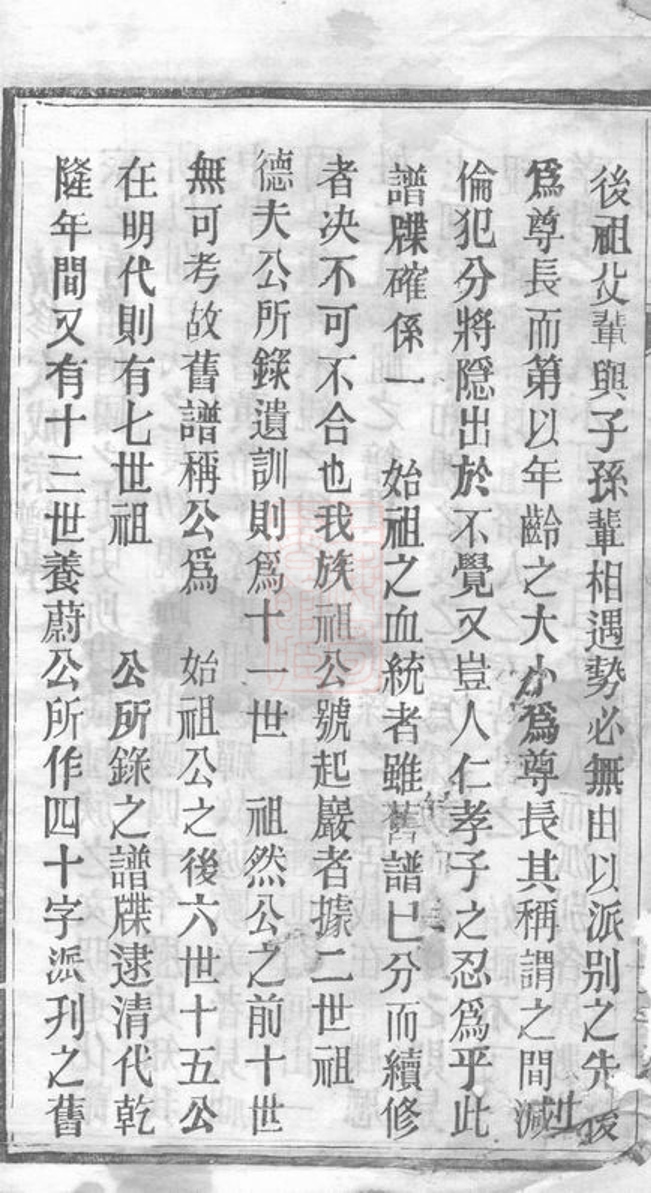 後祖父輩與子孫輩相遇勢必無由以派別之先後
爲尊長而第以年齡之大小爲尊長其稱謂之間滅
倫犯分將隱出於不覺又豈人仁孝子之忍爲乎此
譜牒確係一 始祖之血統者雖舊譜已分而續修
者决不可不合也我族祖公號起巖者據二世祖
德夫公所錄遺訓則爲十一世 祖然公之前十世
無可考故舊譜稱公爲 始祖公之後六世十五公
在明代則有七世祖 公所錄之譜牒逮清代乾
隆年間又有十三世養蔚公所作四十字派刋之舊